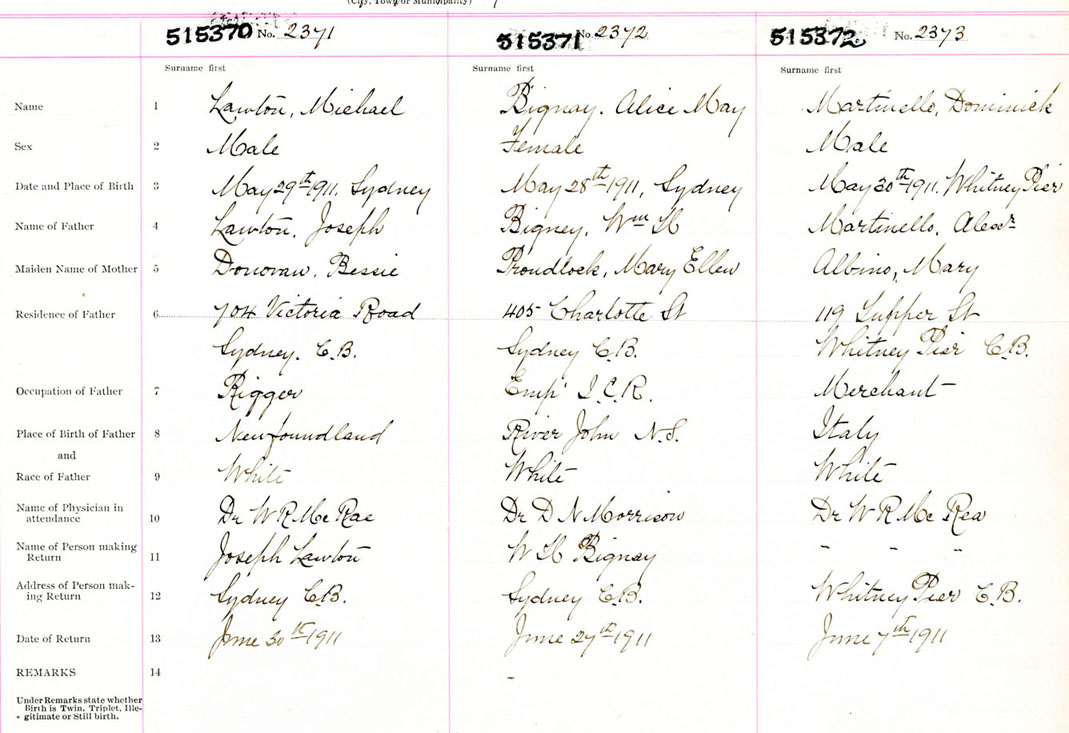 (City, Town or Municipality)
515370 No. 2371 515371 No. 2372 515372 No. 2373
Surname first Surname first Surname first
Name 1 Lawton, Michael Bignay. Alice May Martinello, Dominick
Sex 2 Male Female Male
Date and Place of Birth 3 May 29th 1911, Sydney May 28th 1911, Sydney May 30th 1911. Whitney Pier
Name of Father 4 Lawton, Joseph Bigney, Wm H Martinello, Alexr
Maiden Name of Mother 5 Donovan, Bessie Proudlock, Mary Ellen Albino, Mary
Residence of Father 6 704 Victoria Road 405 Charlotte St 119 Tupper St
Sydney. C.B. Sydney C.B. Whitney Pier C.B.
Occupation of Father 7 Rigger Emp I.C.R. Merchant
Place of Birth of Father 8 Newfoundland River John N.S. Italy
and
Race of Father 9 White White White
Name of Physician in
attendance 10 Dr W R McRae Dr D N Morrison Dr W R McRea
Name of Person making
Return 11 Joseph Lawton W H Bignay " " "
Address of Person mak-
ing Return 12 Sydney C.B. Sydney C.B. Whitney Pier C.B.
Date of Return 13 June 30th 1911 June 27th 1911 June 7th 1911
REMARKS 14
Under Remarks state whether
Birth is Twin, Triplet, Ille-
gitimate or Still birth.